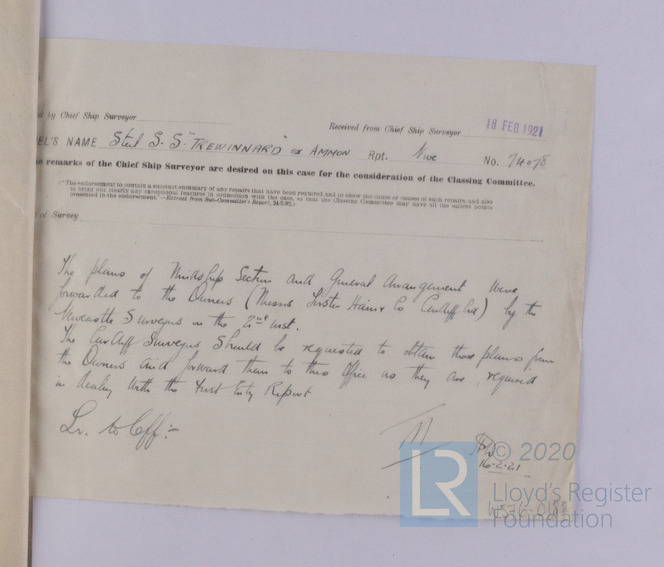 d by Chief Ship Surveyor
Received from Chief Ship Surveyor 16 FEB 1921
EL'S NAME Steel S.S "TREWINNARD" ex AMMON Rpt. Nwc No. 74078
e remarks of the Chief Ship Surveyor are desired on this case for the consideration of the Classing Committee.
("The endorsement to contain a succinct summary of any repairs that have been required and to show the cause or causes of such repairs, and also
to bring out clearly any exceptional features in connection with the case, so that the Classing Committee may have all the salient points
presented in the endorsement."—Extract from Sub-Committee's Report, 24/5/92.)
of Survey
The plans of Midship Section and General Arrangement were
forwarded to the Owners (Messrs Foster Hain & Co Cardiff Ltd) by the
Newcastle Surveyors on the 2nd inst.
The Cardiff Surveyors should be requested to obtain those plans from
the Owners and forward them to this Office as they are required
in dealing with the First Entry Report
Lr. to Cff:-
16-2-21
© 2020
LR
Lloyd's Register
Foundation